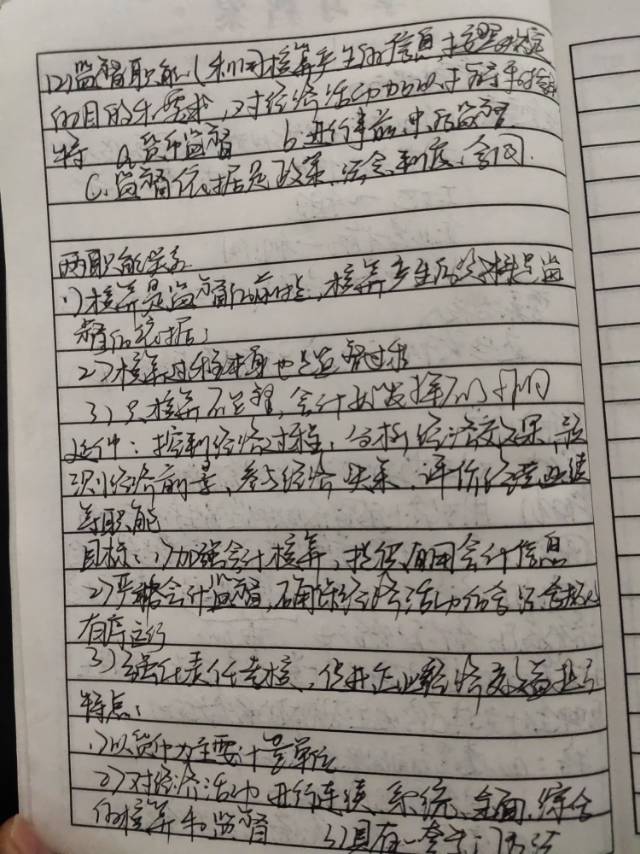 (2)监督职能(利用核算产生的信息,按照
的目的和要求,对经济活动加以
特 a.货币监督 b.进行事前、中、后监督
C.监督依据是政策、法令、制度、合同.
两职能关系
1)核算是监督的前提,核算产生的资料是监
督的依据;
2)核算过程本身也是监督过程
3)只核算不监督,会计无法发挥 作用
延伸:控制经济过程,分析经济效果,预
测经济前景,参与经济决策,评价经营业绩
等职能
目标:(1)加强会计核算,提供有用会计信息
2)严格会计监督,确保经济活动合法、合规、
有序运行
3)强化责任考核,促进企业经济效益提高
特点:
1)以货币为主要计量单位
2)对经济活动进行连续、系统、全面、综合
的核算和监督 3)具有一套专门方法